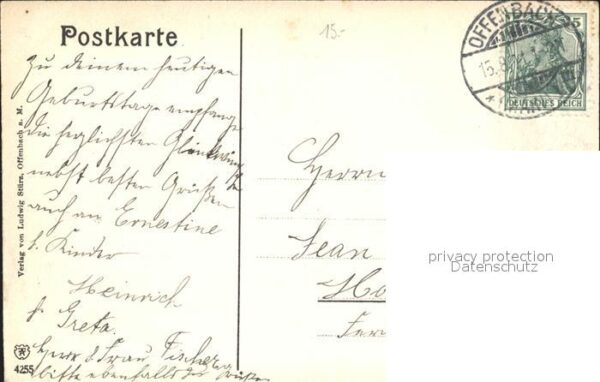 Postkarte
15.-
OFFENBACH
5
DEUTSCHES REICH
Zu deinem heutigen
Geburtstage empfange
die herzlichsten Glückwünsche
nebst besten Grüßen
auch an Ernestine
& Kinder
Heinrich
& Greta.
Herr & Frau Fischer
bitte ebenfalls zu grüßen
Herrn
Jean
Verlag von Ludwig Stürz, Offenbach a. M.
4255
privacy protection
Datenschutz